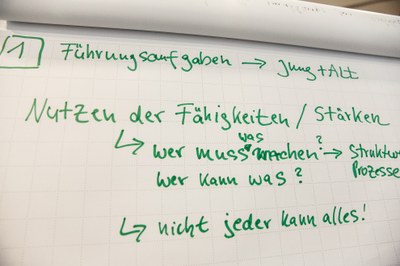 1 Führungsaufgaben → Jung + Alt
Nutzen der Fähigkeiten / Stärken
↳ wer muss was machen? → Struktur
wer kann was? Prozesse
↳ nicht jeder kann alles!